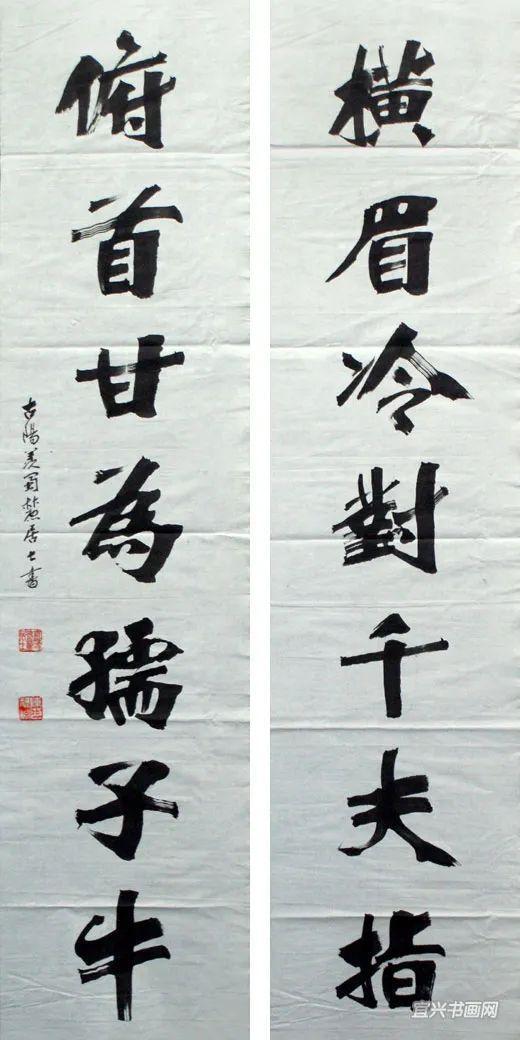 橫眉冷對千夫指
俯首甘為孺子牛
古陽羨蜀麓居士書
宜兴书画网